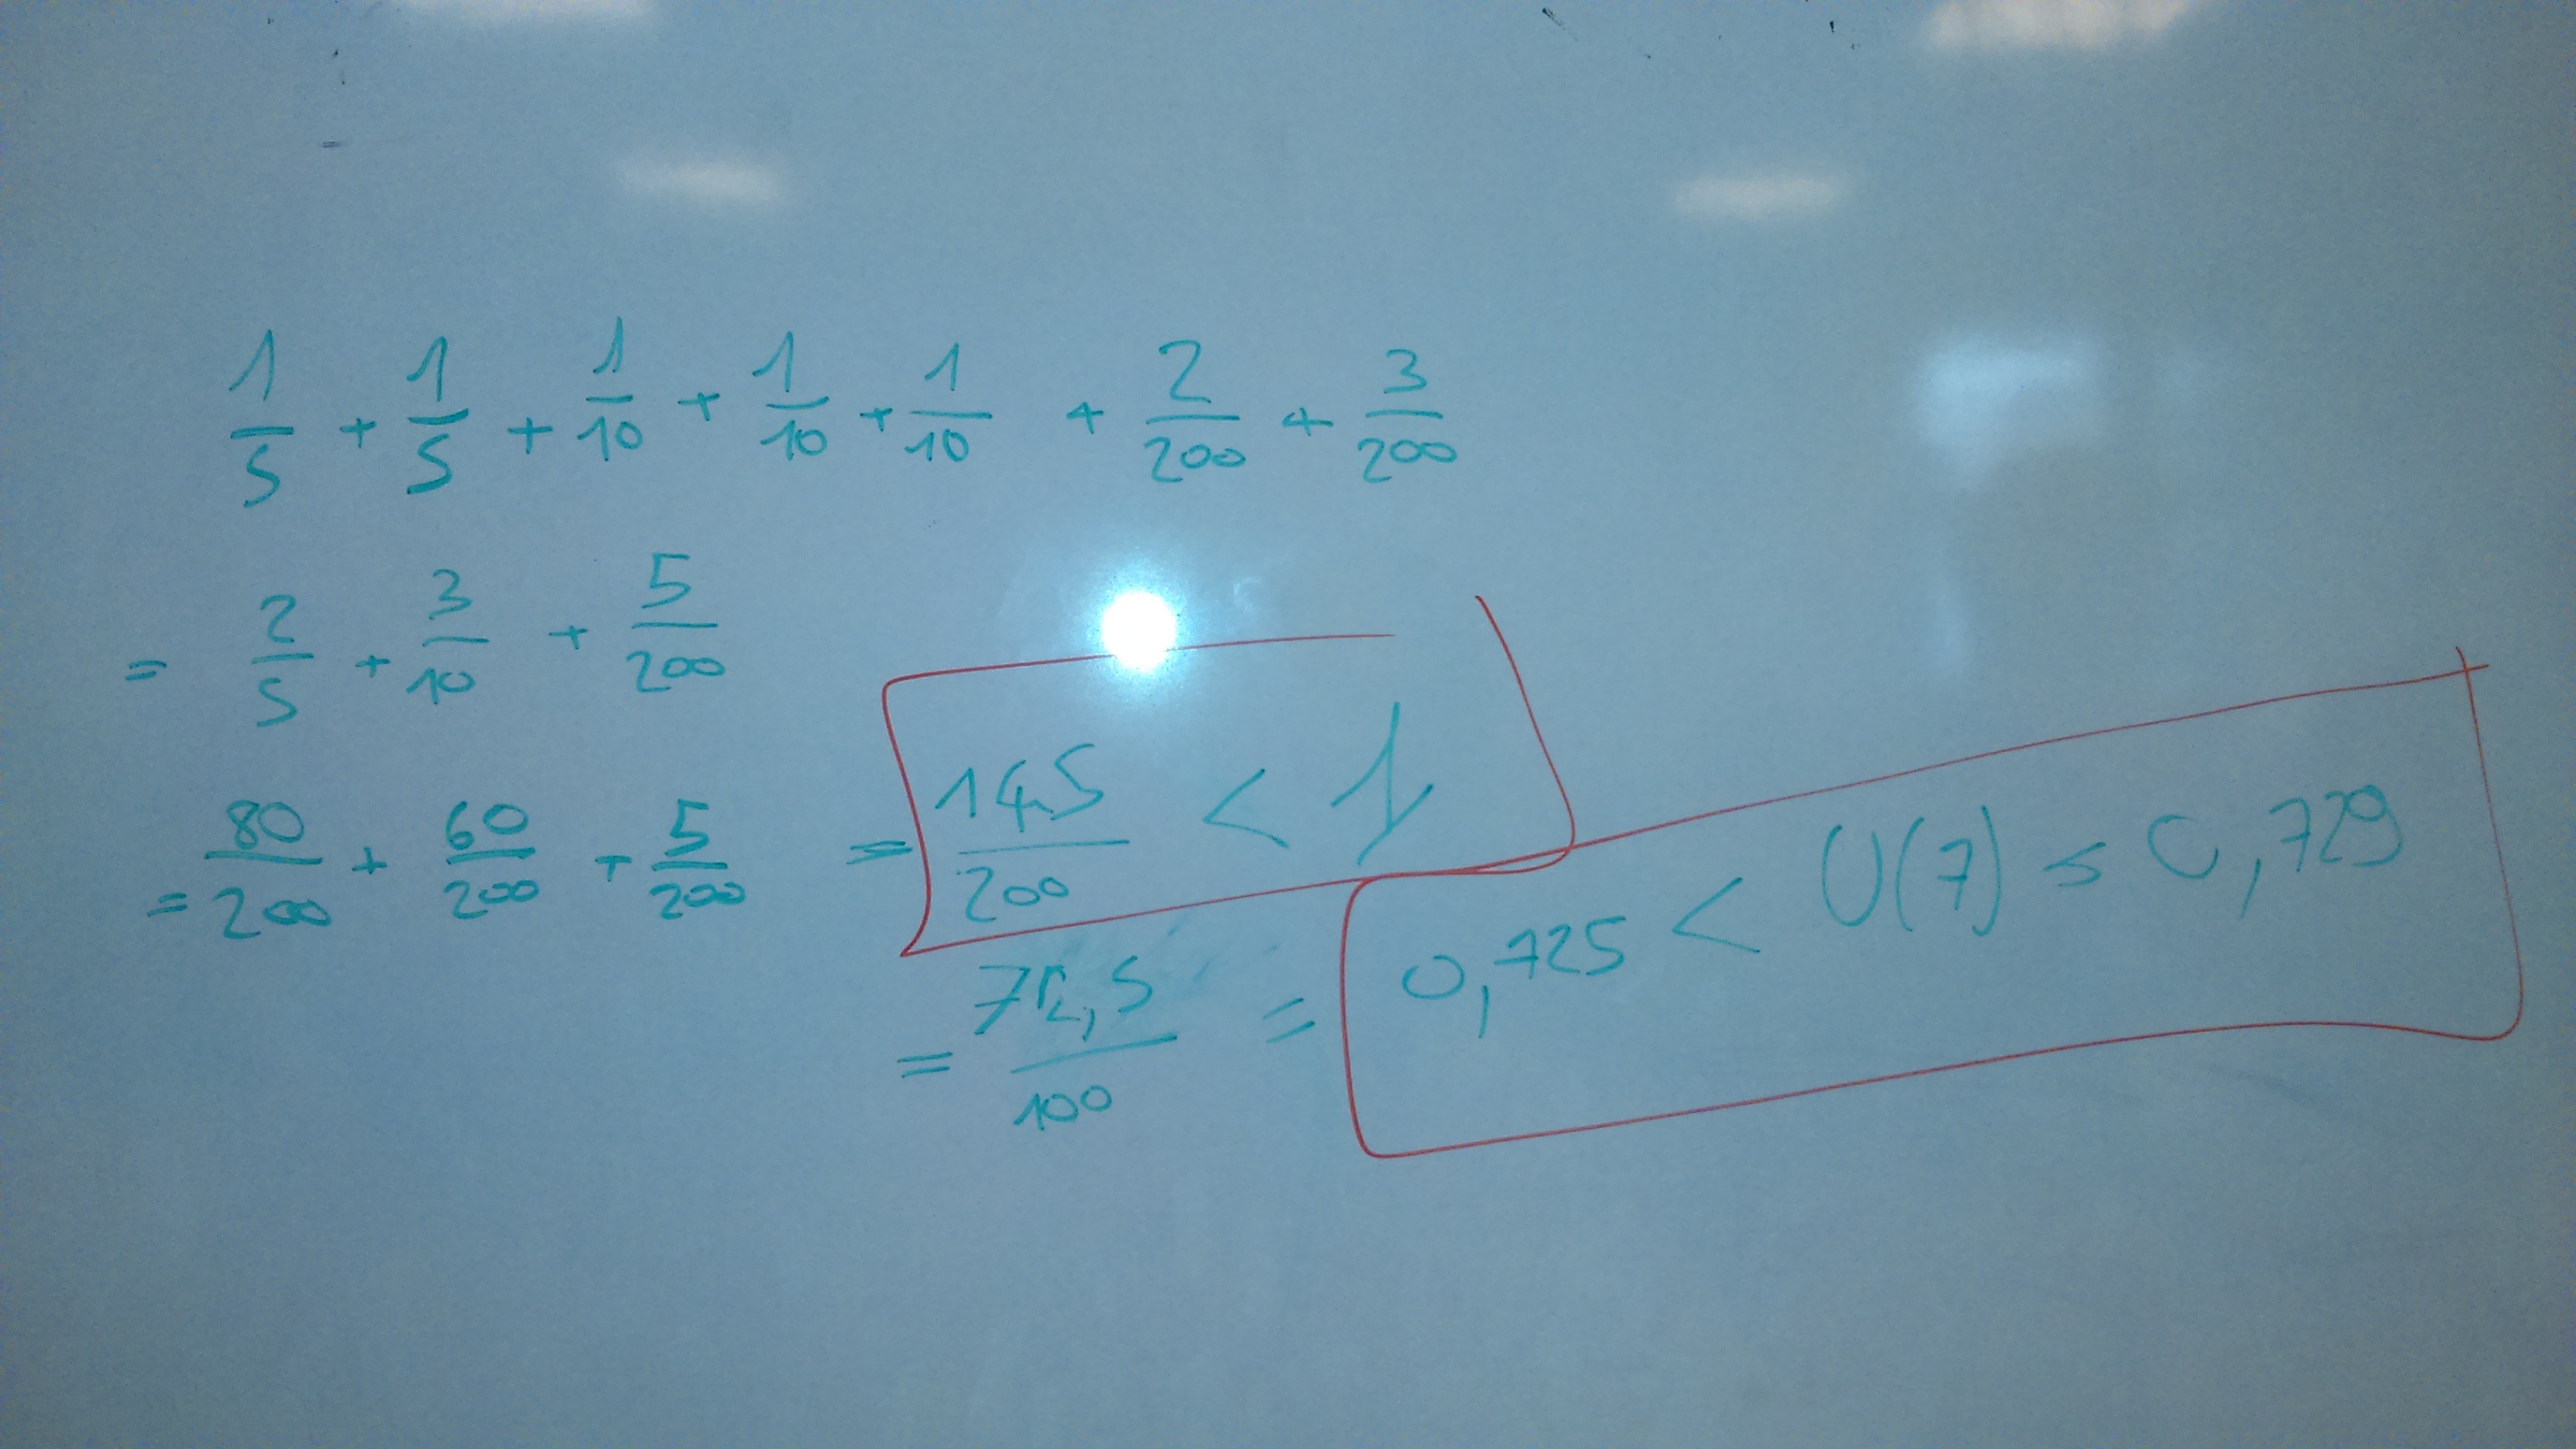 1/5 + 1/5 + 1/10 + 1/10 + 1/10 + 2/200 + 3/200
= 2/5 + 3/10 + 5/200
= 80/200 + 60/200 + 5/200 = 145/200 < 1
= 72,5/100 = 0,725 < U(7) ≤ 0,729